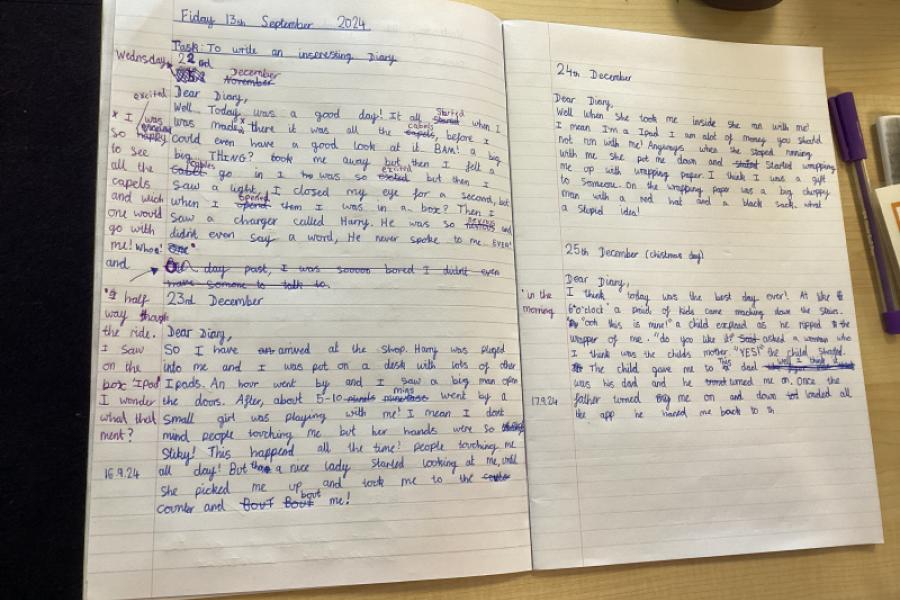 Fiday 13th September 2024
Task: To write an inseresting Diary
Wednsday
22nd
December
November
Dear Diary,
Well.. Today was a good day! It all Started when I
was made, there it was all the cabels, before I
could even have a good look at it. BAM! a big
big THING? took me away but then I felt a
cabel go in I was so excited but then I
saw a light, I closed my eye for a second, but
when I opened them I was in a.. box? Then I
saw a charger called Harry. He was so nervius and
didn't even say a word, He never spoke to me EVER!
day past, I was sooooo bored I didnt even
have somone to talk to.
excited
* I was
so happy
to see
all the
capels
and wich
one would
go with
me! Whoe!
and
23rd December
Dear Diary,
So I have arrived at the shop. Harry was pluged
into me and I was put on a desk with lots of other
Ipads. An hour went by and I saw a big man open
the doors. After, about 5-10 mins went by a
small girl was playing with me! I mean I dont
mind people touching me but her hands were so
stiby! This happend all the time! people touching me
all day! But a nice lady started looking at me, until
she picked me up and took me to the
counter and bout me!
"I half
way though
the ride.
I saw
on the
box "Ipad
I wonder
what that
ment?
16.9.24
24th December
Dear Diary,
Well when she took me inside she ran with me!
I mean I'm a Ipad I am alot of money you should
not run with me! Anyways when she stoped running
with me she put me down and started wrapping
me up with wrapping paper. I think I was a gift
to someone. On the wrapping paper was a big chuppy
man with a red hat and a black sack. what
a stupid idea!
25th December (chistmas day)
Dear Diary,
I think today was the best day ever! At like
"in the
morning
6"o'clock" a praid of kids came maching down the stairs.
"ooh this is mine!" a child explead as he ripped the
wrapper of me. "do you like it?" asked a woman who
I think was the childs mother. "YES!" the child shouted.
The child gave me so This dad well I think it
was his dad and he turned me on. Once the
17.9.24
father turned me on and down loaded all
the app he haned me back to th